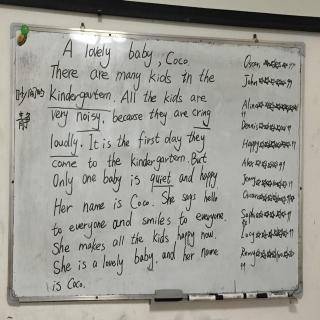 A lovely baby, Coco
There are many kids in the
kindergarten. All the kids are
very noisy, because they are cring
loudly. It is the first day they
come to the kindergarten. But
Only one baby is quiet and happy.
Her name is Coco. She says hello
to everyone and smiles to everyone.
She makes all the kids happy now.
She is a lovely baby, and her name
is Coco.
吵闹的
静
John
Alina
Dennis
Happy
Alex
Jenny
Sophia
Lucy